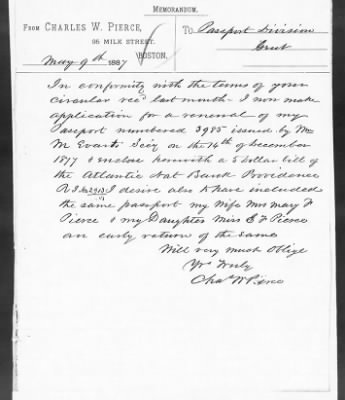 MEMORANDUM.
FROM CHARLES W. PIERCE,
95 MILK STREET,
BOSTON.
To Passport Division
May 9th 1887
In conformity with the terms of your
circular recd last month - I now make
application for a renewal of my
Passport numbered 3985 issued by Wm
M Evarts Secy on the 14th of December
1877 & enclose herewith a 5 dollar bill of
the Atlantic Nat Bank Providence
R I No 2913 I desire also to have included
the same passport my Wife Mrs Mary F
Pierce & my Daughter Miss E F Pierce
an early return of the same
Will very much Oblige
Yrs Truly
Chas W Pierce